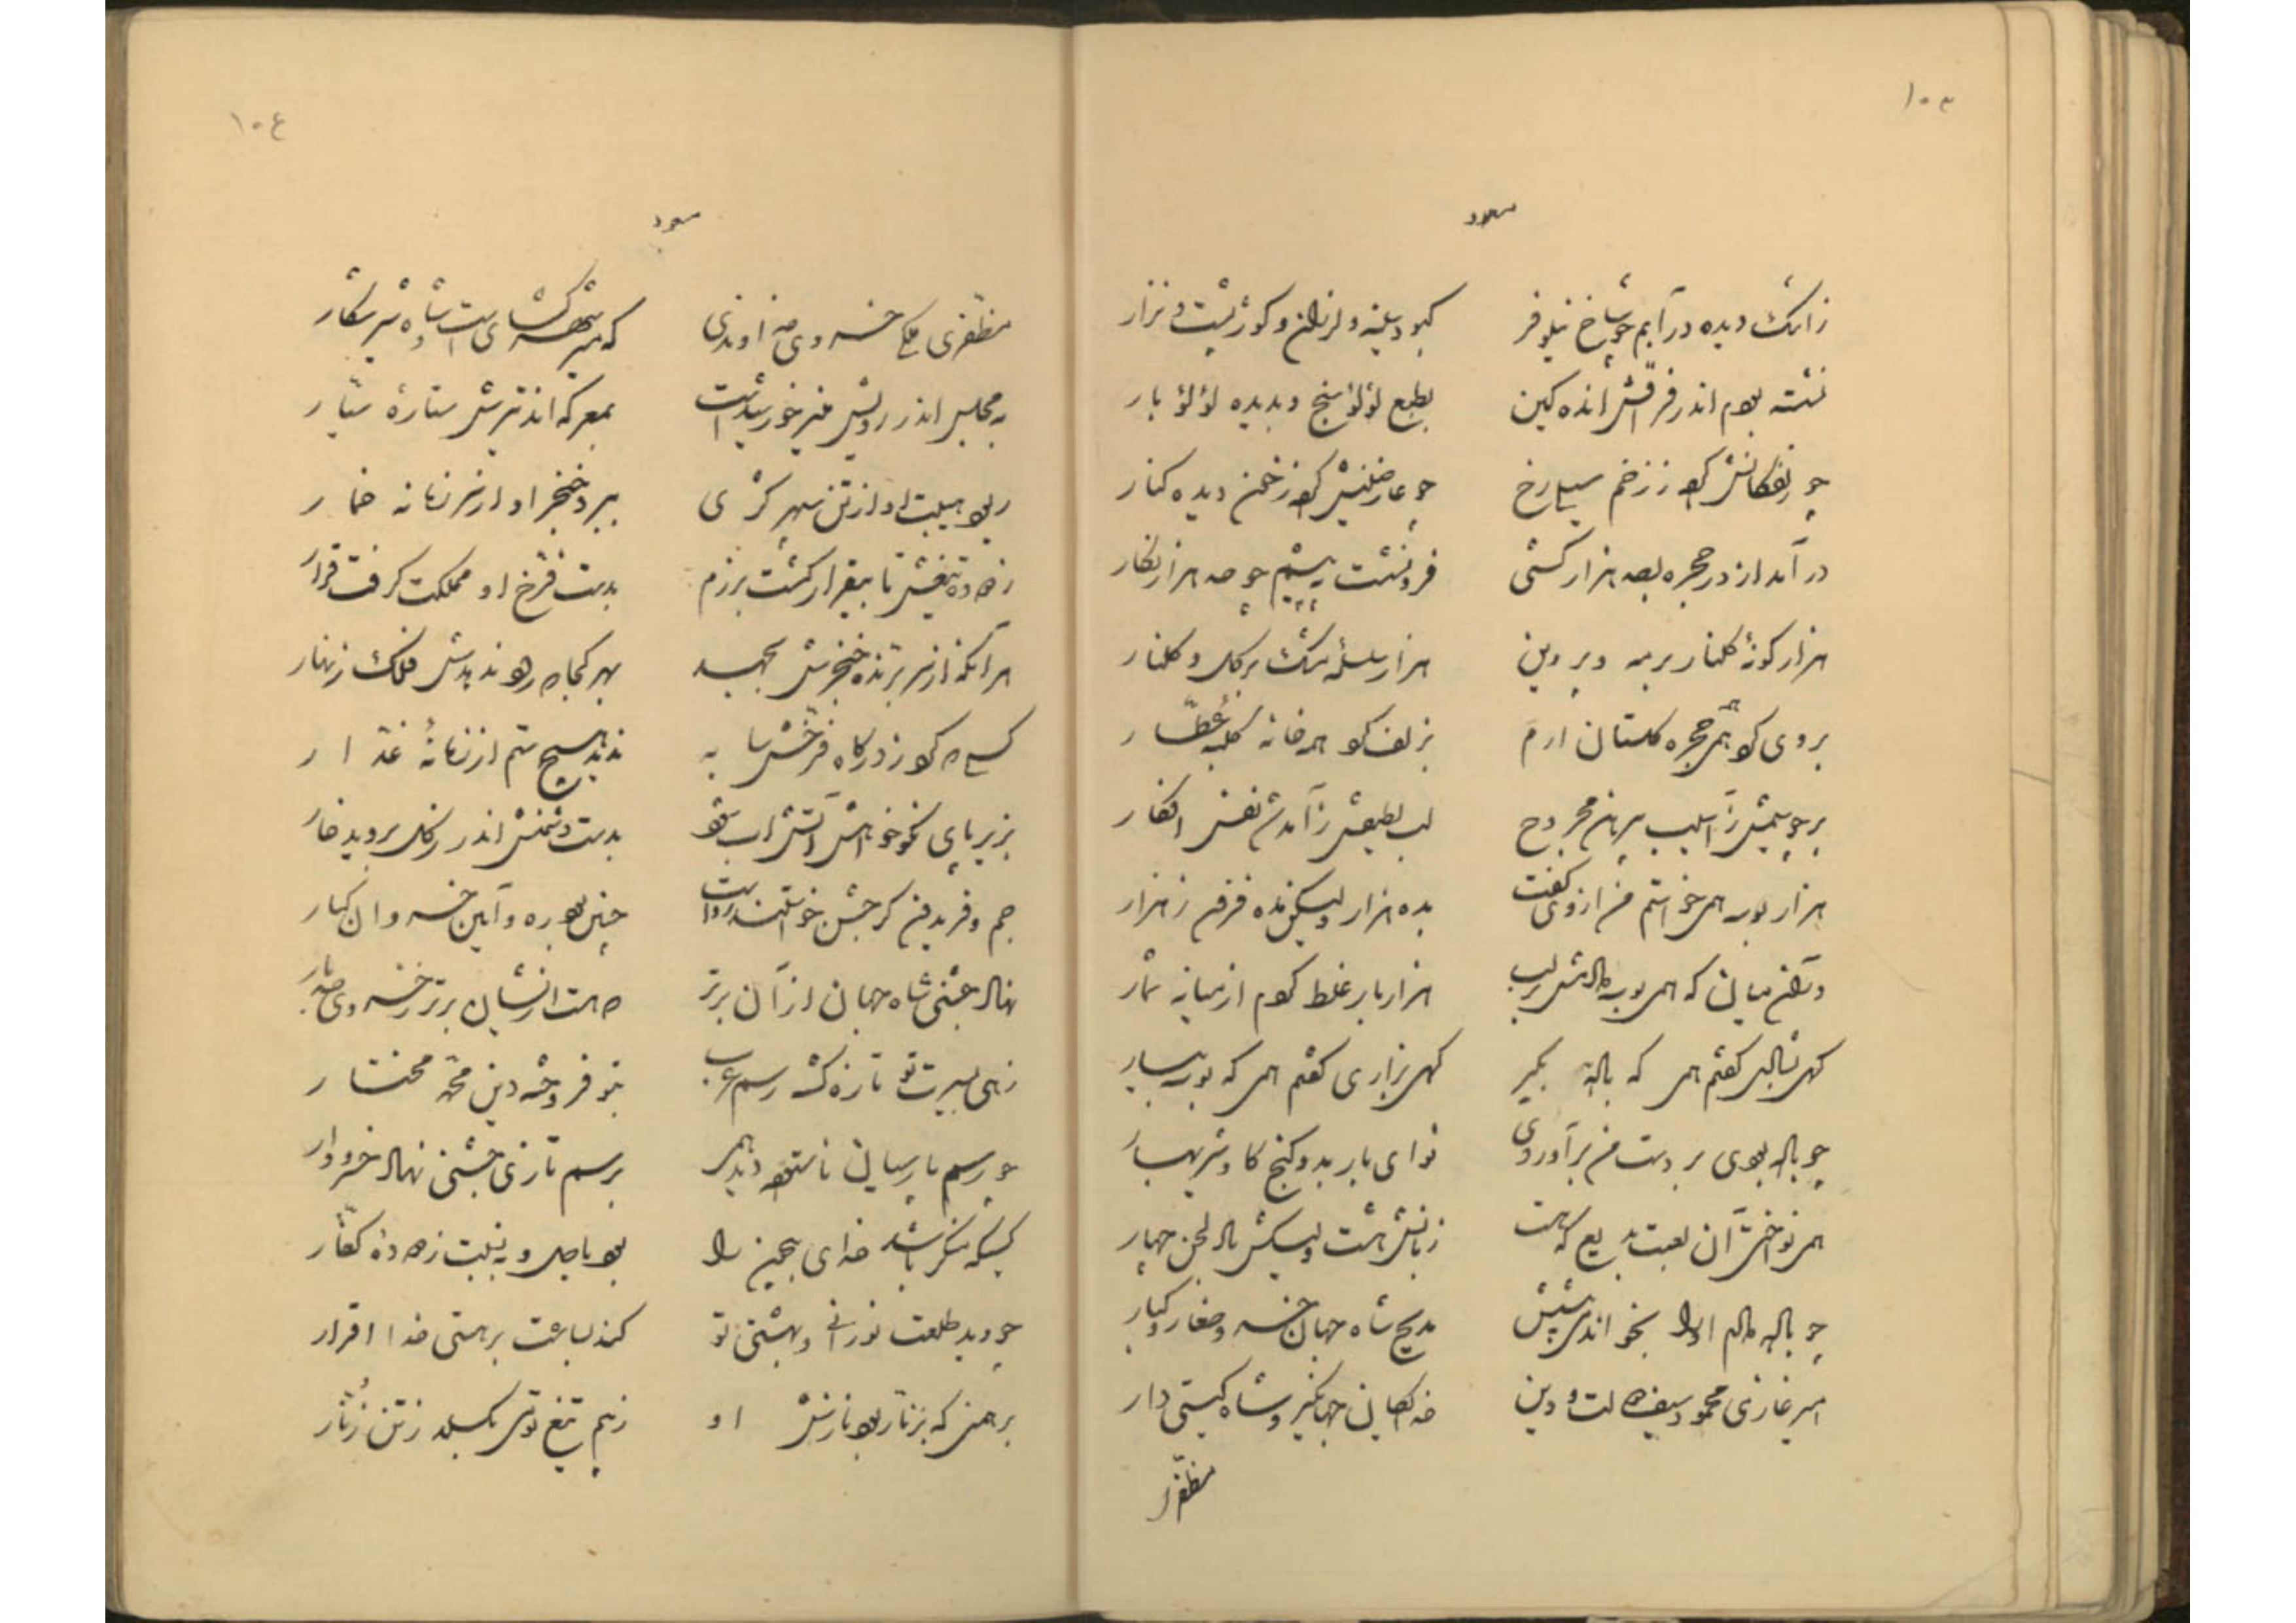 ۱۰۳
مسعود
ز اشک دیده در آبم چو شاخ نیلوفر کبود سینه و لرزان و کوژپشت و نزار
نشسته بودم اندر فراقش انده گین بطبع لؤلؤ سنج و بدیده لؤلؤ بار
چو زلفکانش کرده ز زخم سیلی رخ چو عارضینش کرده ز خون دیده کنار
در آمد از در حجره بصد هزار کشی فرو نشست به پیشم چو صد هزار نگار
هزار گونهٔ گلنار بر مه و پروین هزار سلسلهٔ مشک بر گل و گلنار
بروی کرد همه حجره گلستان ارم بزلف کرد همه خانه کلبهٔ عطّار
بر چو سیمش ز آسیب پیرهن مجروح لب لطیفش ز آمد شد نفس افگار
هزار بوسه همی خواستم من از وی گفت بده هزار ولیکن نه ده فزون ز هزار
در آن میان که همی بوسه دادمش بر لب هزار بار غلط کردم از میانه شمار
گهی بنالش گفتم همی که باده بگیر گهی بزاری گفتم همی که بوسه بیار
چو باده بودی بر دست من برآوردی نوای باربد و گنج گاو و سبز بهار
همی نواخت آن لعبت بدیع که هست زبانش هشت ولیکنش باد لحن چهار
چو باده دادم او را بخواندمی پیشش مدیح شاه جهان خسرو صغار و کبار
امیر غازی محمود سیف دولت و دین خدایگان جهانگیر و شاه گیتی دار
مظفّر
۱۰۴
مسعود
مظفّری ملکی خسروی خداوندی که شیر شرزه کشست و شاه شیر شکار
به مجلس اندر رویش منیر خورشیدست بمعرکه اندر تیرش ستارهٔ سیّار
ربود هیبت او از تن سپهر کژی ببرد خنجر او از سر زمانه خمار
زدوده تیغش تا بیقرار گشت برزم بدست فرّخ او مملکت گرفت قرار
هر آنکه از سر برّنده خنجرش بجهد بهر کجا که رود ندهدش فلک زنهار
کسی که کرد ز درگاه فرّخش سایه ندید هیچ ستم از زمانهٔ غدّار
بزیر پای نکو خواهش آتش آب شود بدست دشمنش اندر ز گل بروید خار
جم و فریدون گر جشن خواستند رواست چنین بود ره و آیین خسروان کبار
نهاد جشنی شاه جهان از آن برتر که هست از ایشان برتر بخسروی صد بار
زهی بسیرت تو تازه گشته رسم عرب بتو فروخته دین محمّد مختار
چو رسم پارسیان ناستوده دید همی برسم تازی جشنی نهاد خسرو وار
کسیکه منکر باشد خدای بیچون را بود باصل و به نسبت ز دودهٔ کفّار
چو دید طلعت نورانی و بهشتی تو کند بساعت بر هستی خدا اقرار
برهمنی که بزنار بود نازش او ز بیم تیغ تو بگسلد ز تن زُنّار